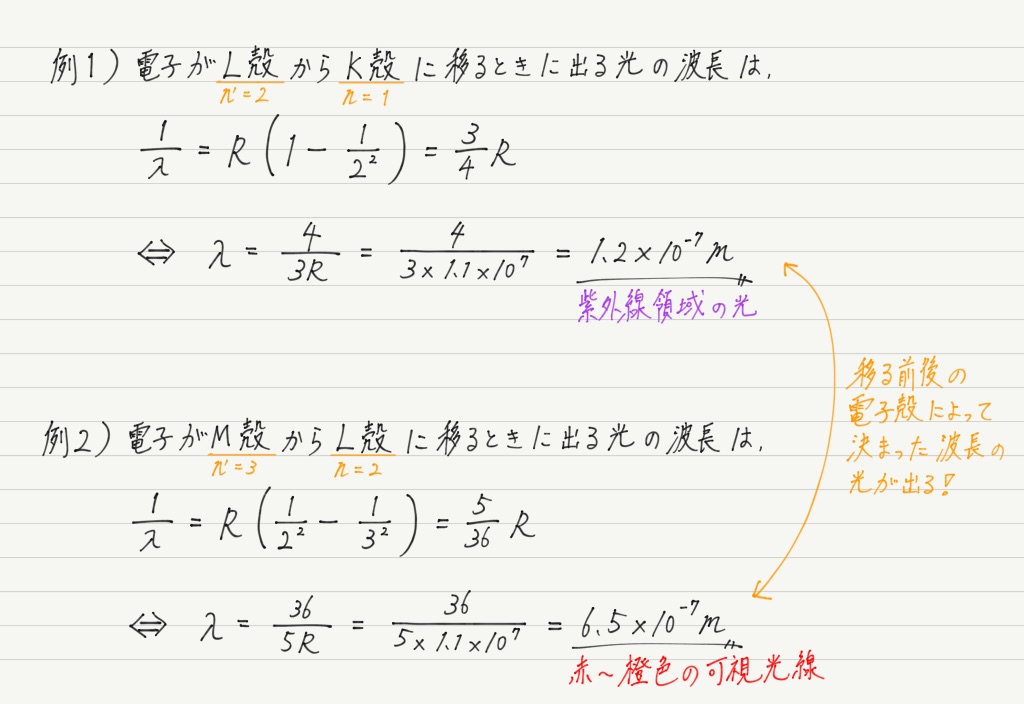 例1) 電子がL殻からK殻に移るときに出る光の波長は,
n'=2 n=1
1/λ = R(1 − 1/2²) = 3/4 R
⇔ λ = 4/3R = 4/3×1.1×10⁷ = 1.2×10⁻⁷m
紫外線領域の光
移る前後の
電子殻によって
決まった波長の
光が出る!
例2) 電子がM殻からL殻に移るときに出る光の波長は,
n'=3 n=2
1/λ = R(1/2² − 1/3²) = 5/36 R
⇔ λ = 36/5R = 36/5×1.1×10⁷ = 6.5×10⁻⁷m
赤~橙色の可視光線